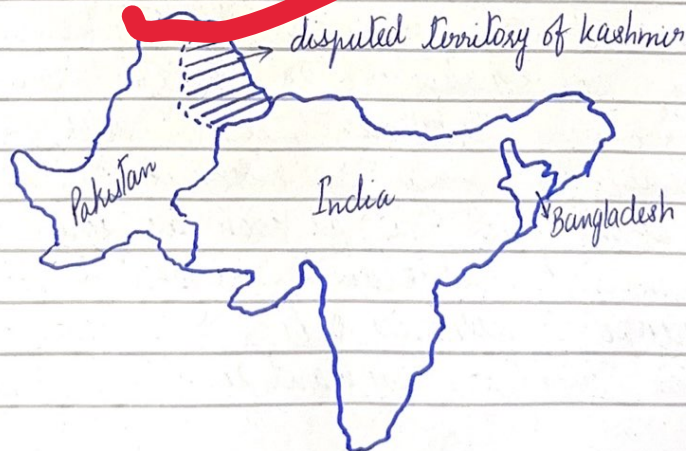 disputed territory of kashmir
Pakistan
India
Bangladesh